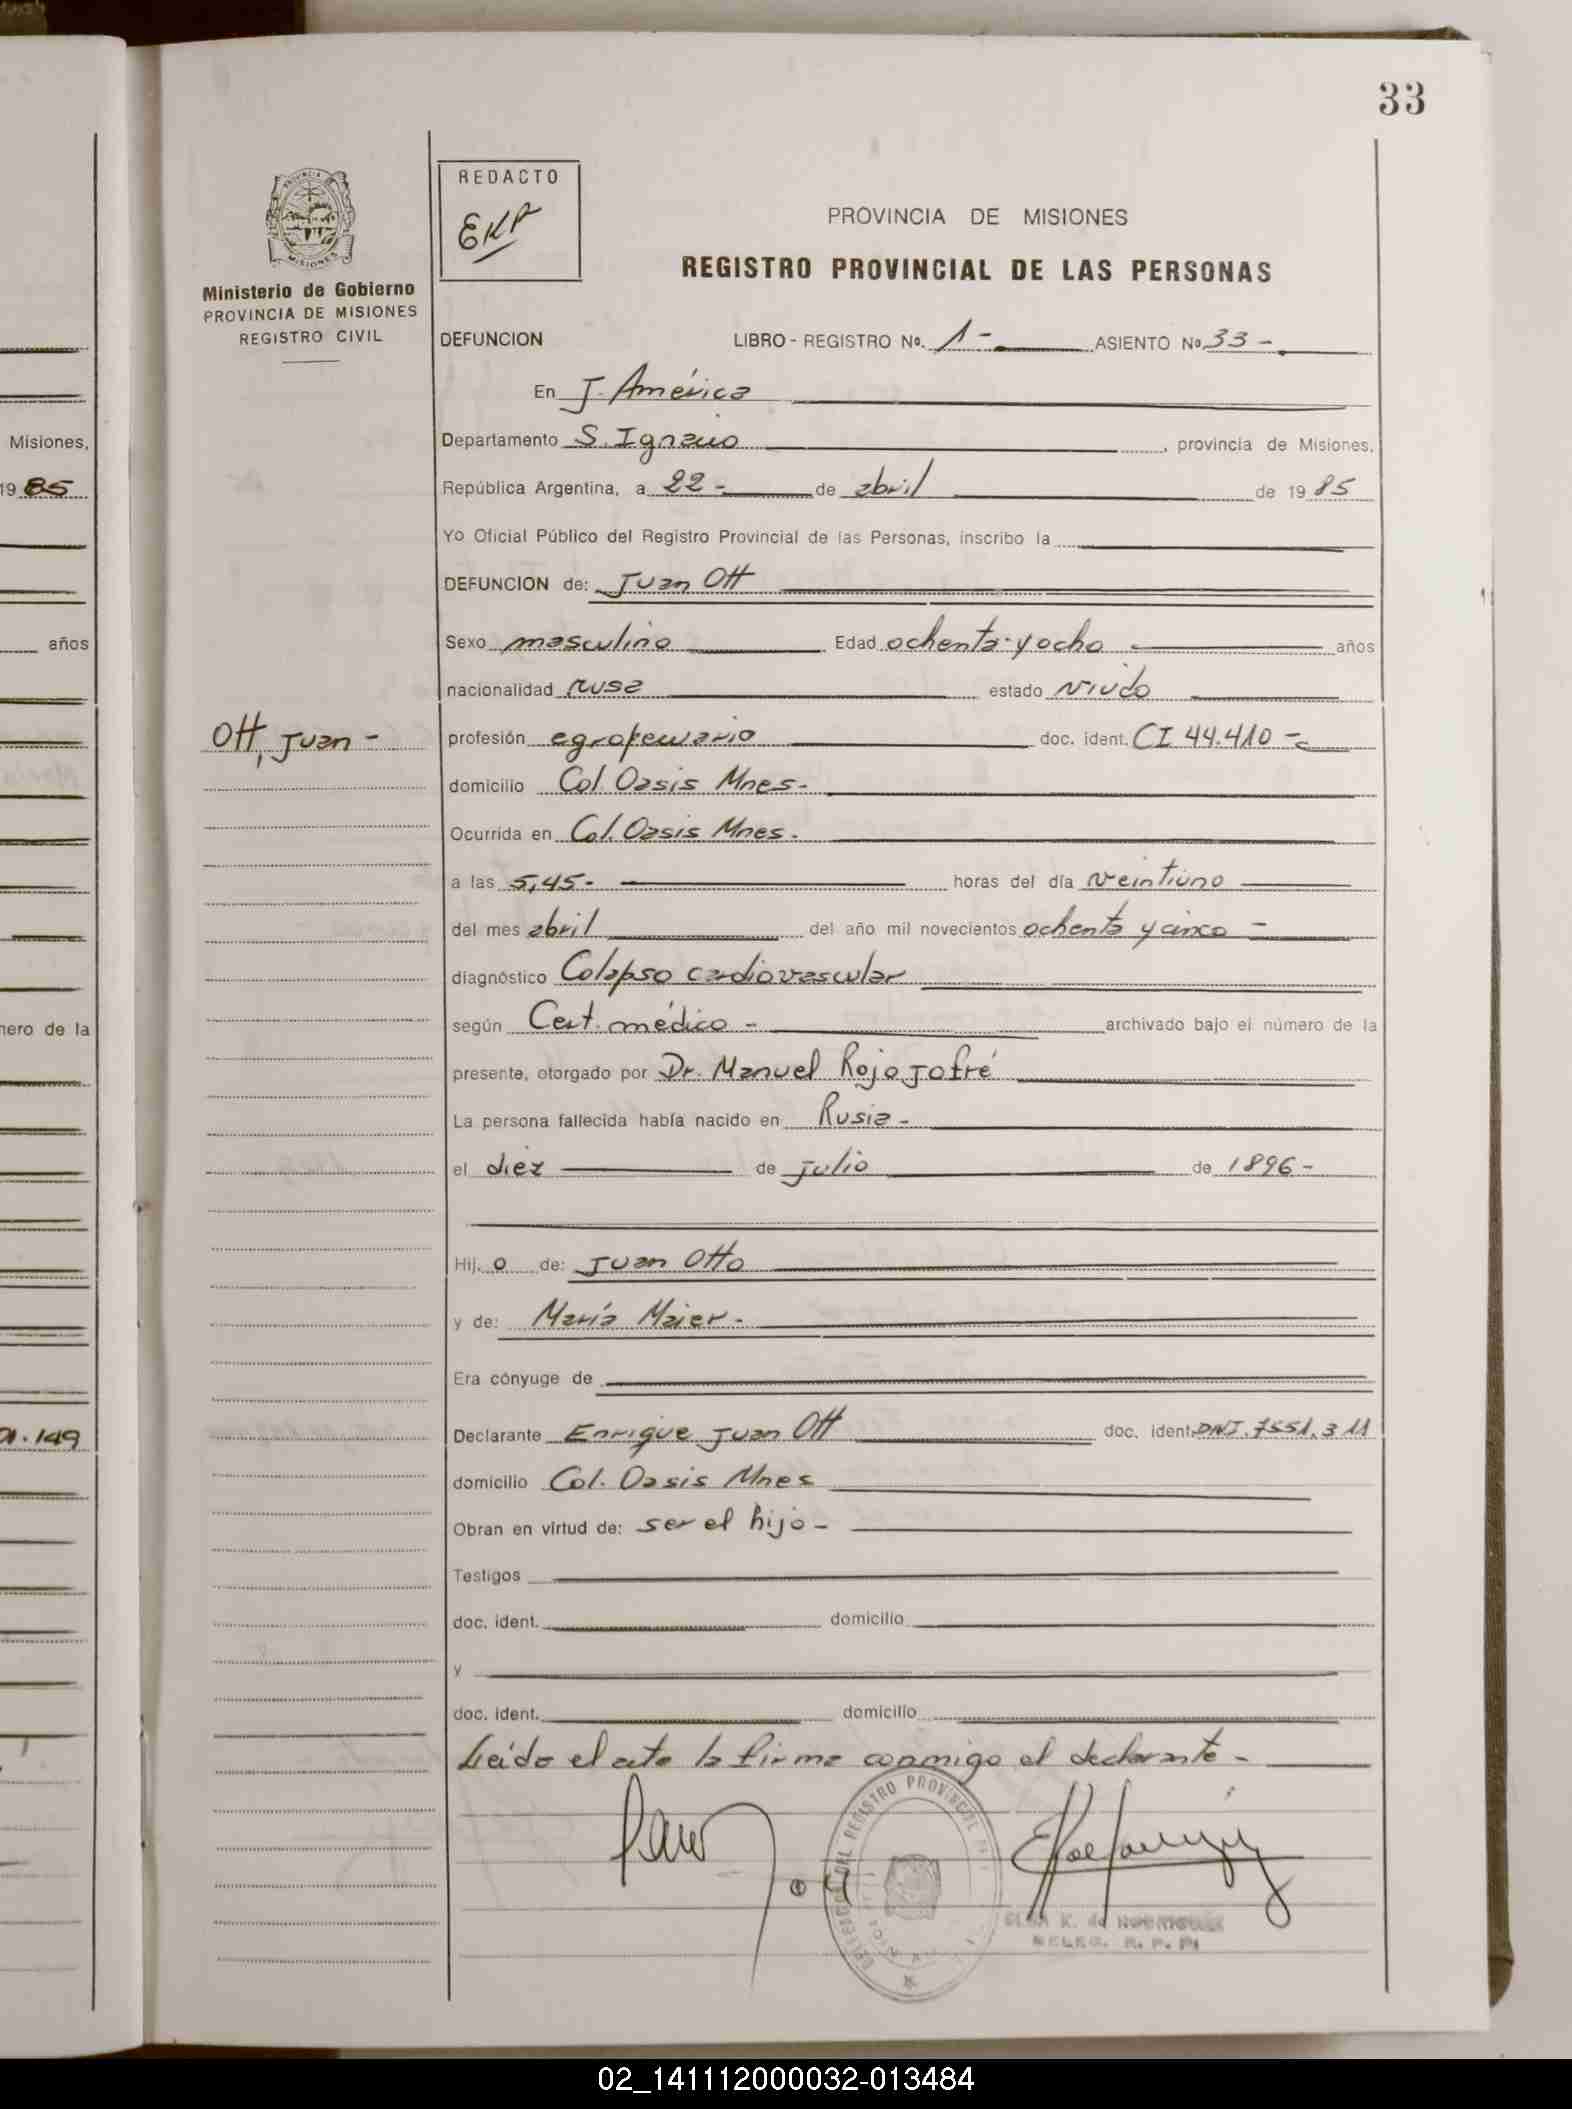 33
REDACTO
PROVINCIA DE MISIONES
REGISTRO PROVINCIAL DE LAS PERSONAS
Ministerio de Gobierno
PROVINCIA DE MISIONES
REGISTRO CIVIL
DEFUNCION LIBRO - REGISTRO No. 1 - ASIENTO No 33 -
En J. América
Departamento S. Ignacio, provincia de Misiones,
República Argentina, a 22 - de abril de 19 85
Yo Oficial Público del Registro Provincial de las Personas, inscribo la
DEFUNCION de: Juan Ott
Sexo masculino Edad ochenta y ocho años
nacionalidad rusa estado viudo
Ott, Juan -
profesión agropecuario doc. ident. CI 44.410 -
domicilio Col. Oasis Mnes -
Ocurrida en Col. Oasis Mnes -
a las 5,45 - horas del día veintiuno
del mes abril del año mil novecientos ochenta y cinco -
diagnóstico Colapso cardiovascular
según Cert. médico - archivado bajo el número de la
presente, otorgado por Dr. Manuel Rojo Jofré
La persona fallecida había nacido en Rusia -
el diez de julio de 1896 -
Hij o de: Juan Otto
y de: María Maier -
Era cónyuge de
Declarante Enrique Juan Ott doc. ident. DNI. 7551.311
domicilio Col. Oasis Mnes
Obran en virtud de: ser el hijo -
Testigos
doc. ident. domicilio
y
doc. ident. domicilio
Leido el acta la firma conmigo el declarante -
DEL REGISTRO PROVINCIAL
Misiones,
19 85
años
nero de la
149
02_141112000032-013484